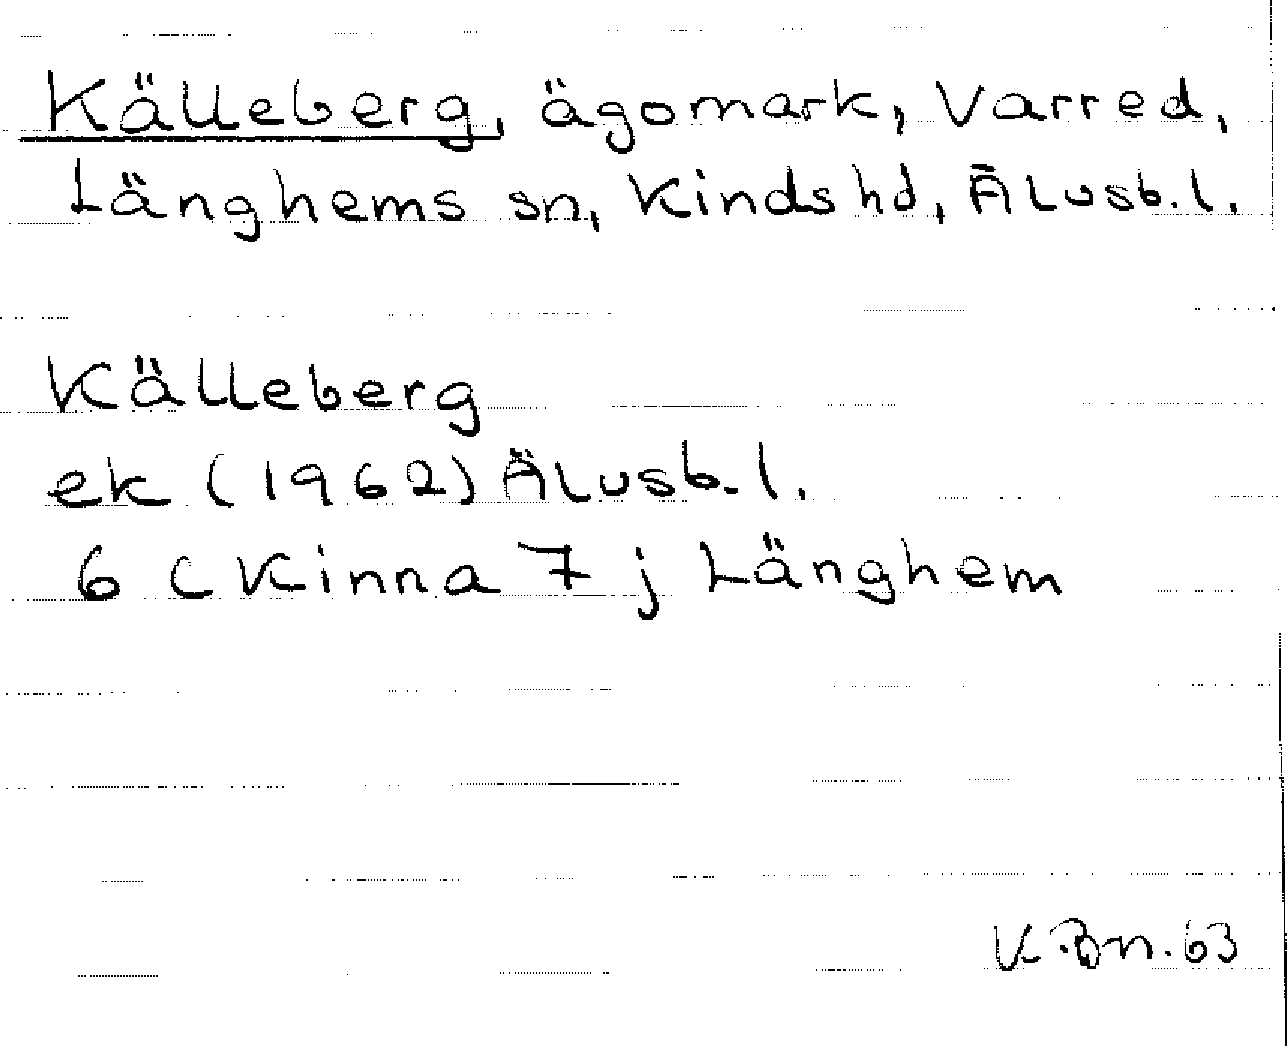 Källeberg, ägomark, Varred,
Länghems sn, Kinds hd, Älvsb. l.
Källeberg
ek (1962) Älvsb. l.
6 C Kinna 7 j Länghem
K. Bn. 63